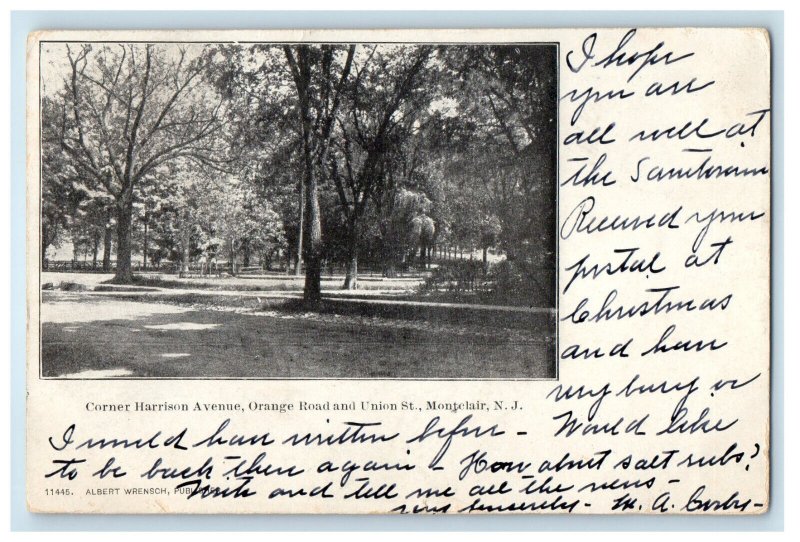 I hope
you are
all well at
the Sanitarium
Received your
postal at
Christmas
and have
very busy or
I would have written before - Would like
to be back then again - How about salt rubs?
Write and tell me all the news -
Yours sincerely - M. A. Corby -
Corner Harrison Avenue, Orange Road and Union St., Montclair, N. J.
11445. ALBERT WRENSCH, PUBLISHER